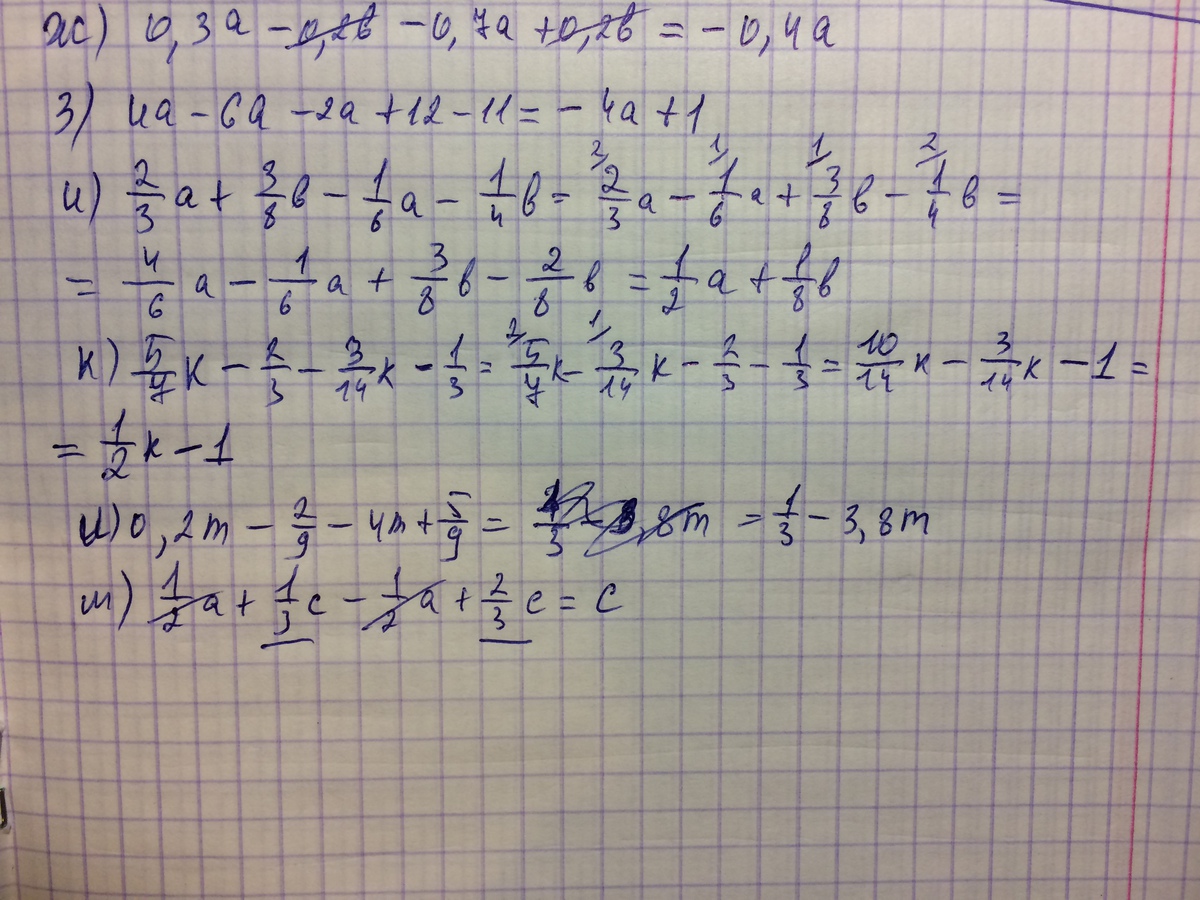 ж) 0,3a - 0,2в - 0,7a + 0,2в = - 0,4a
з) 4a - 6a - 2a + 12 - 11 = - 4a + 1
и) 2/3 a + 3/8 в - 1/6 a - 1/4 в = 2/ 2/3 a - 1/ 1/6 a + 1/ 3/8 в - 2/ 1/4 в =
= 4/6 a - 1/6 a + 3/8 в - 2/8 в = 1/2 a + 1/8 в
к) 5/7 к - 2/3 - 3/14 к - 1/3 = 2/ 5/7 к - 1/ 3/14 к - 2/3 - 1/3 = 10/14 к - 3/14 к - 1 =
= 1/2 к - 1
и) 0,2m - 2/9 - 4m + 5/9 = = 1/3 - 3,8m
м) 1/2 a + 1/3 c - 1/2 a + 2/3 c = c